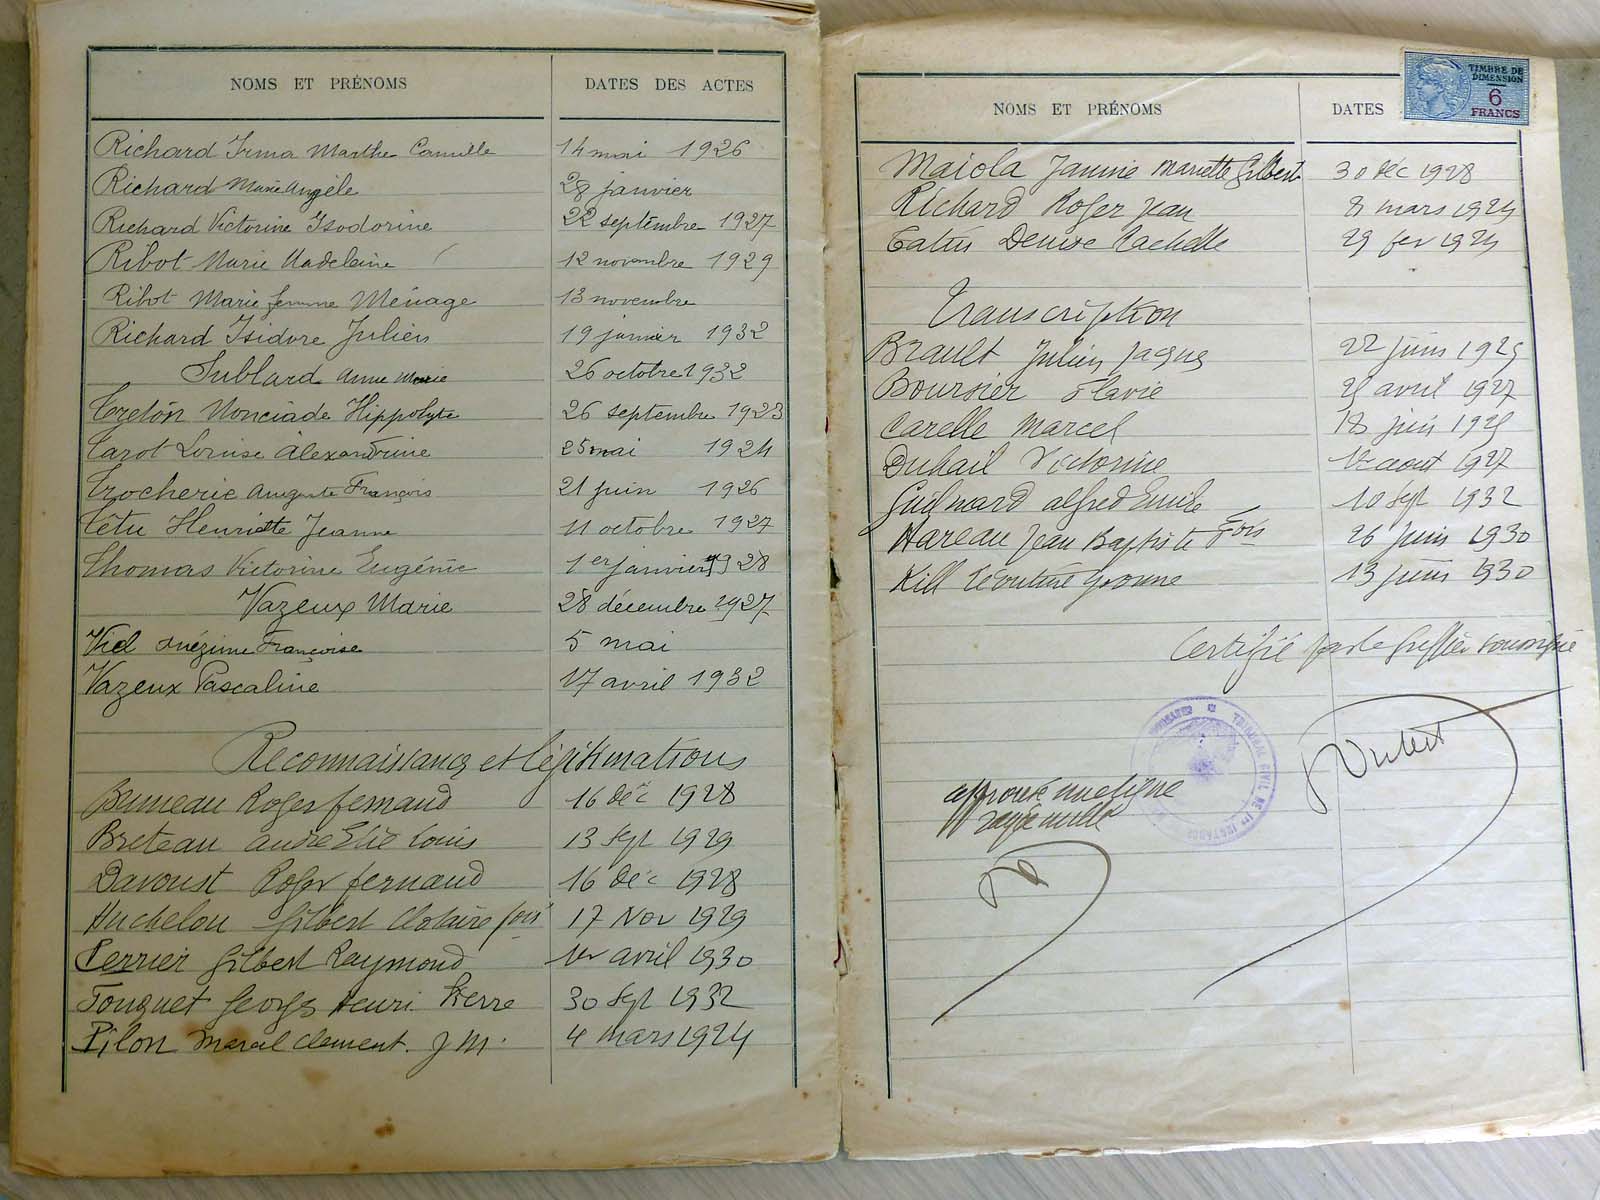 NOMS ET PRÉNOMS DATES DES ACTES
Richard Irma Marthe Camille 14 mai 1926
Richard Marie Angèle 28 janvier
Richard Victorine Isodorine 22 septembre 1927
Ribot Marie Madeleine 12 novembre 1929
Ribot Marie femme Ménage 13 novembre
Richard Isidore Julien 19 janvier 1932
Sublard Anne Marie 26 octobre 1932
Treton Monciade Hippolyte 26 septembre 1923
Tarot Louise Alexandrine 25 mai 1924
Trocherie Auguste François 21 juin 1926
Têtu Henriette Jeanne 11 octobre 1927
Thomas Victorine Eugénie 1er janvier 1928
Vazeux Marie 28 décembre 1927
Viel Françoise 5 mai
Vazeux Pascaline 17 avril 1932
Reconnaissances et légitimations
Bruneau Roger fernand 16 déc 1928
Breteau andré Elie Louis 13 Sept 1929
Davoust Roger fernand 16 déc 1928
Huchelou Gilbert Clotaire fois 17 Nov 1929
Perrier Gilbert Raymond 1er avril 1930
Fouquet Georges Henri Pierre 30 Sept 1932
Pilon Marcel clement. J M. 4 mars 1924
NOMS ET PRÉNOMS DATES
TIMBRE DE
DIMENSION
6
FRANCS
Maiola Janine Mariette Gilbert 30 déc 1928
Richard Roger Jean 8 mars
Denise Rachelle 29 fev
Transcription
Brault Julien Jacques 22 juin
Boursier Flavie avril 1927
Carelle Marcel 18 juin
Duhail Victorine 12 aout 1927
Guilmard alfred Emile 10 Sept 1932
Hareau Jean Baptiste Fois 26 juin 1930
Kill Léontine Yvonne 13 juin 1930
Certifié par le greffier soussigné
TRIBUNAL CIVIL DE 1re INSTANCE
approuvé une ligne
rayée nulle